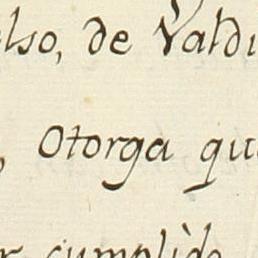 elso, de Valdi
, Otorga que
r cumplido